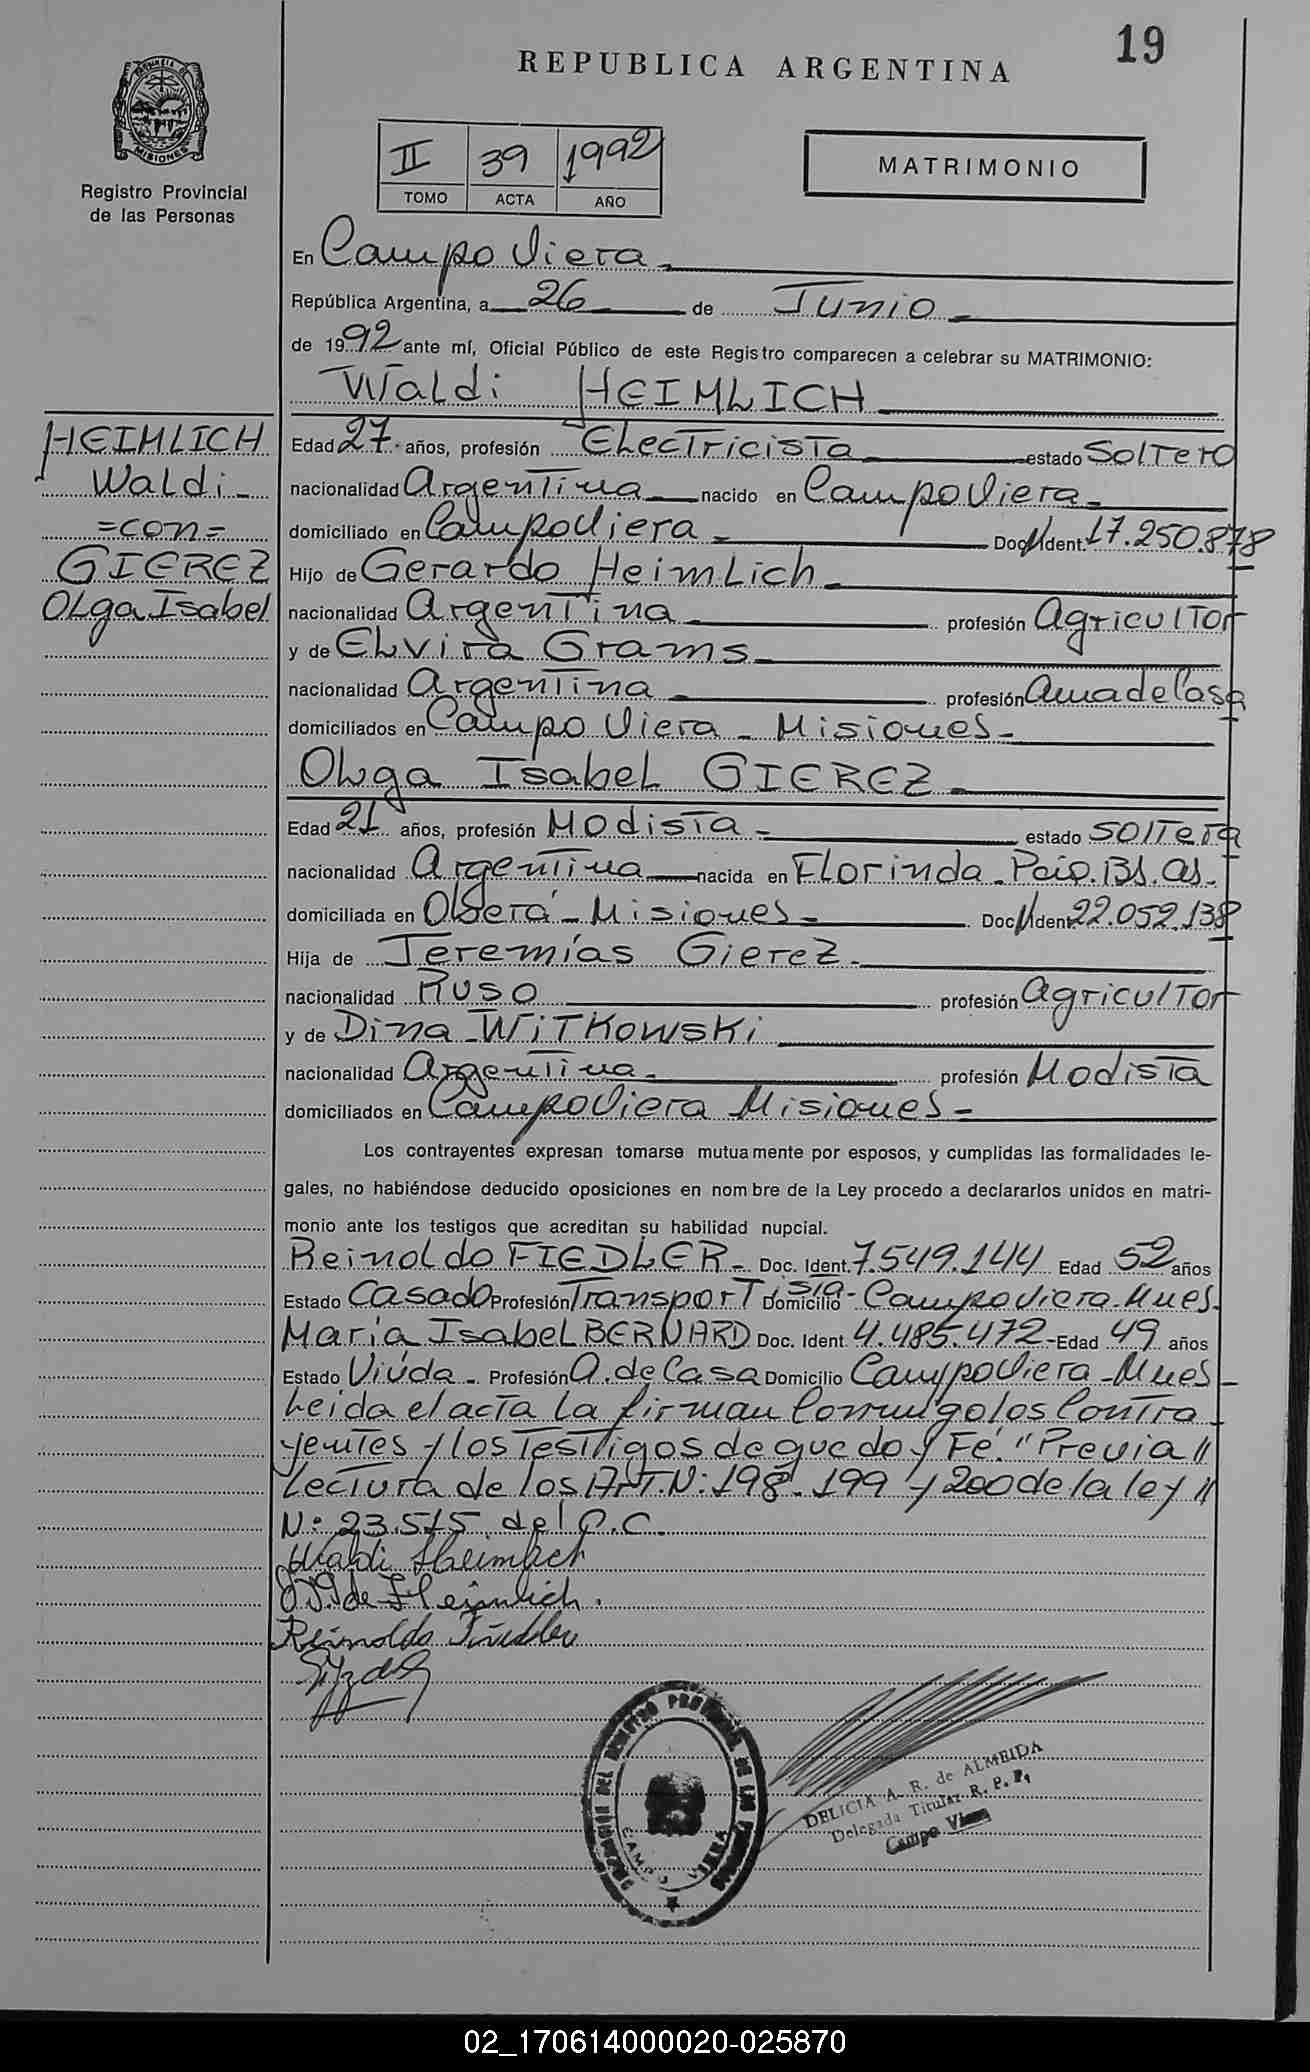 19
REPUBLICA ARGENTINA
PROVINCIA DE
MISIONES
Registro Provincial
de las Personas
II 39 1992
TOMO ACTA AÑO
MATRIMONIO
En Campo Viera
República Argentina, a 26 de Junio
de 1992 ante mí, Oficial Público de este Registro comparecen a celebrar su MATRIMONIO:
Waldi HEIMLICH
HEIMLICH
Waldi
=con=
GIEREZ
Olga Isabel
Edad 27 años, profesión Electricista estado Soltero
nacionalidad Argentina nacido en Campo Viera
domiciliado en Campo Viera Doc. N Ident. 17.250.878
Hijo de Gerardo Heimlich
nacionalidad Argentina profesión Agricultor
y de Elvira Grams
nacionalidad Argentina profesión Ama de Casa
domiciliados en Campo Viera - Misiones
Olga Isabel GIEREZ
Edad 21 años, profesión Modista estado soltera
nacionalidad Argentina nacida en Florinda - Pcio. Bs. As.
domiciliada en Oberá - Misiones Doc. N Ident. 22.052.138
Hija de Jeremías Gierez
nacionalidad Ruso profesión Agricultor
y de Dina Witkowski
nacionalidad Argentina profesión Modista
domiciliados en Campo Viera Misiones
Los contrayentes expresan tomarse mutuamente por esposos, y cumplidas las formalidades le-
gales, no habiéndose deducido oposiciones en nombre de la Ley procedo a declararlos unidos en matri-
monio ante los testigos que acreditan su habilidad nupcial.
Reinoldo FIEDLER - Doc. Ident. 7.549.144 Edad 52 años
Estado Casado Profesión Transportista Domicilio - Campo Viera - Mnes.
María Isabel BERNARD Doc. Ident 4.485.472 - Edad 49 años
Estado Viúda - Profesión A. de Casa Domicilio Campo Viera - Mnes -
Leida el acta la firman conmigo los contra
yentes y los testigos de que doy Fé. "Previa"
Lectura de los Art. N: 198. 199 y 200 de la ley"
N: 23.515. del C.C.
Waldi Heimlich
de Heimlich.
Reinoldo Fiedler
DELEGACION DEL REGISTRO PROVINCIAL DE LAS PERSONAS
CAMPO VIERA
DELICIA A. R. de ALMEIDA
Delegada Titular R. P. P.
Campo Viera
02_170614000020-025870